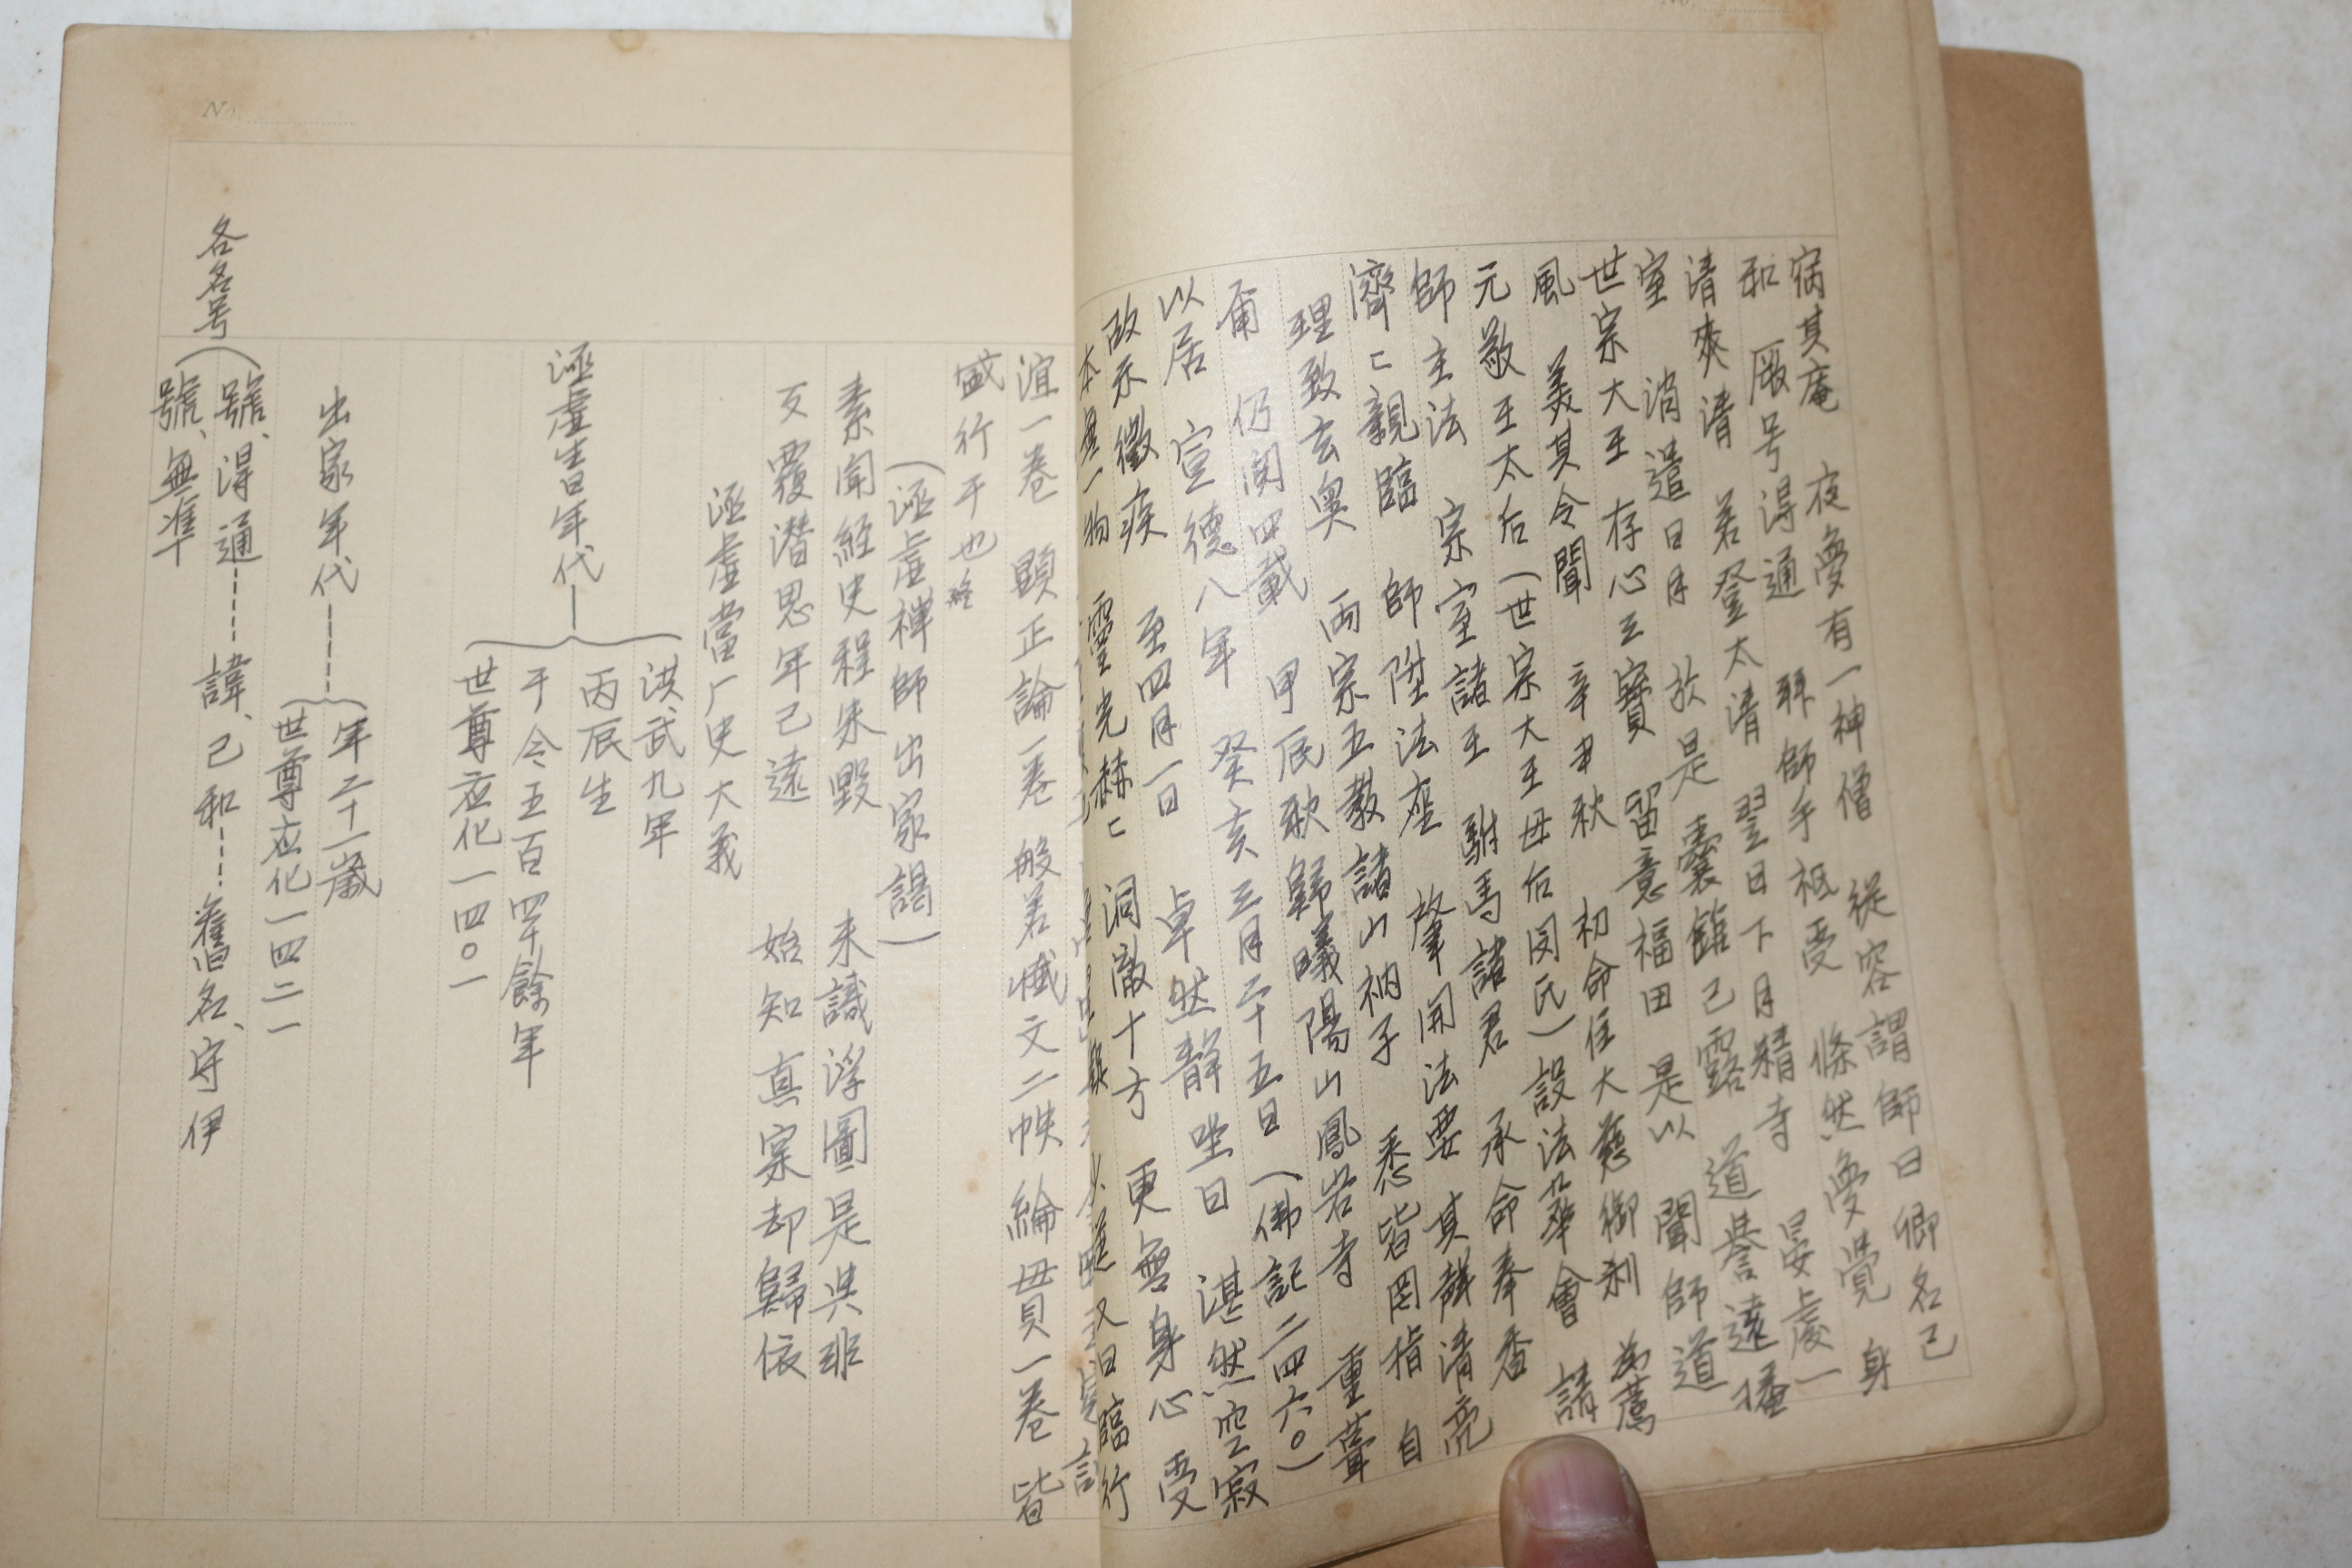 No.
病其庵 夜夢有一神僧 從容謂師曰卿名己
和 厥号得通 拜師手祗受 條然夢覺 身
清爽清 若登太清 翌日下月精寺 晏處一
室 消遣日月 於是囊錐己露 道譽遠播
世宗大王 存心三寶 留意福田 是以 聞師道
風 美其令聞 辛丑秋 初命住大慈御刹 為薦
元敬王太后(世宗大王母后閔氏)設法華會 請
師主法 宗室諸王 駙馬諸君 承命奉香
濟ニ親臨 師陞法座 肇開法要 其辭清亮
理致玄奧 兩宗五教諸山衲子 悉皆罔指 自
甫 仍閱四載 甲辰秋歸曦陽山鳳岩寺 重葺
以居 宣德八年 癸亥三月二十五日(佛記二四六〇)
故示微疾 至四月一日 卓然靜坐曰 湛然空寂
本無一物 靈光赫ニ 洞徹十方 更無身心 受
又曰臨行
誼一卷 顯正論一卷 般若懺文二帙 綸貫一卷 皆
盛行于也 終
(涵虛禪師出家謁)
素聞經史程朱毀 未識浮圖是與非
反覆潛思年己遠 始知真宗却歸依
涵虛當厂史大義
涵虛生日年代
洪武九年
丙辰生
于今五百四十餘年
世尊应化一四〇一
出家年代
年二十一歲
世尊应化一四二一
各名号
號、得通 諱、己和 舊名、守伊
號、無準